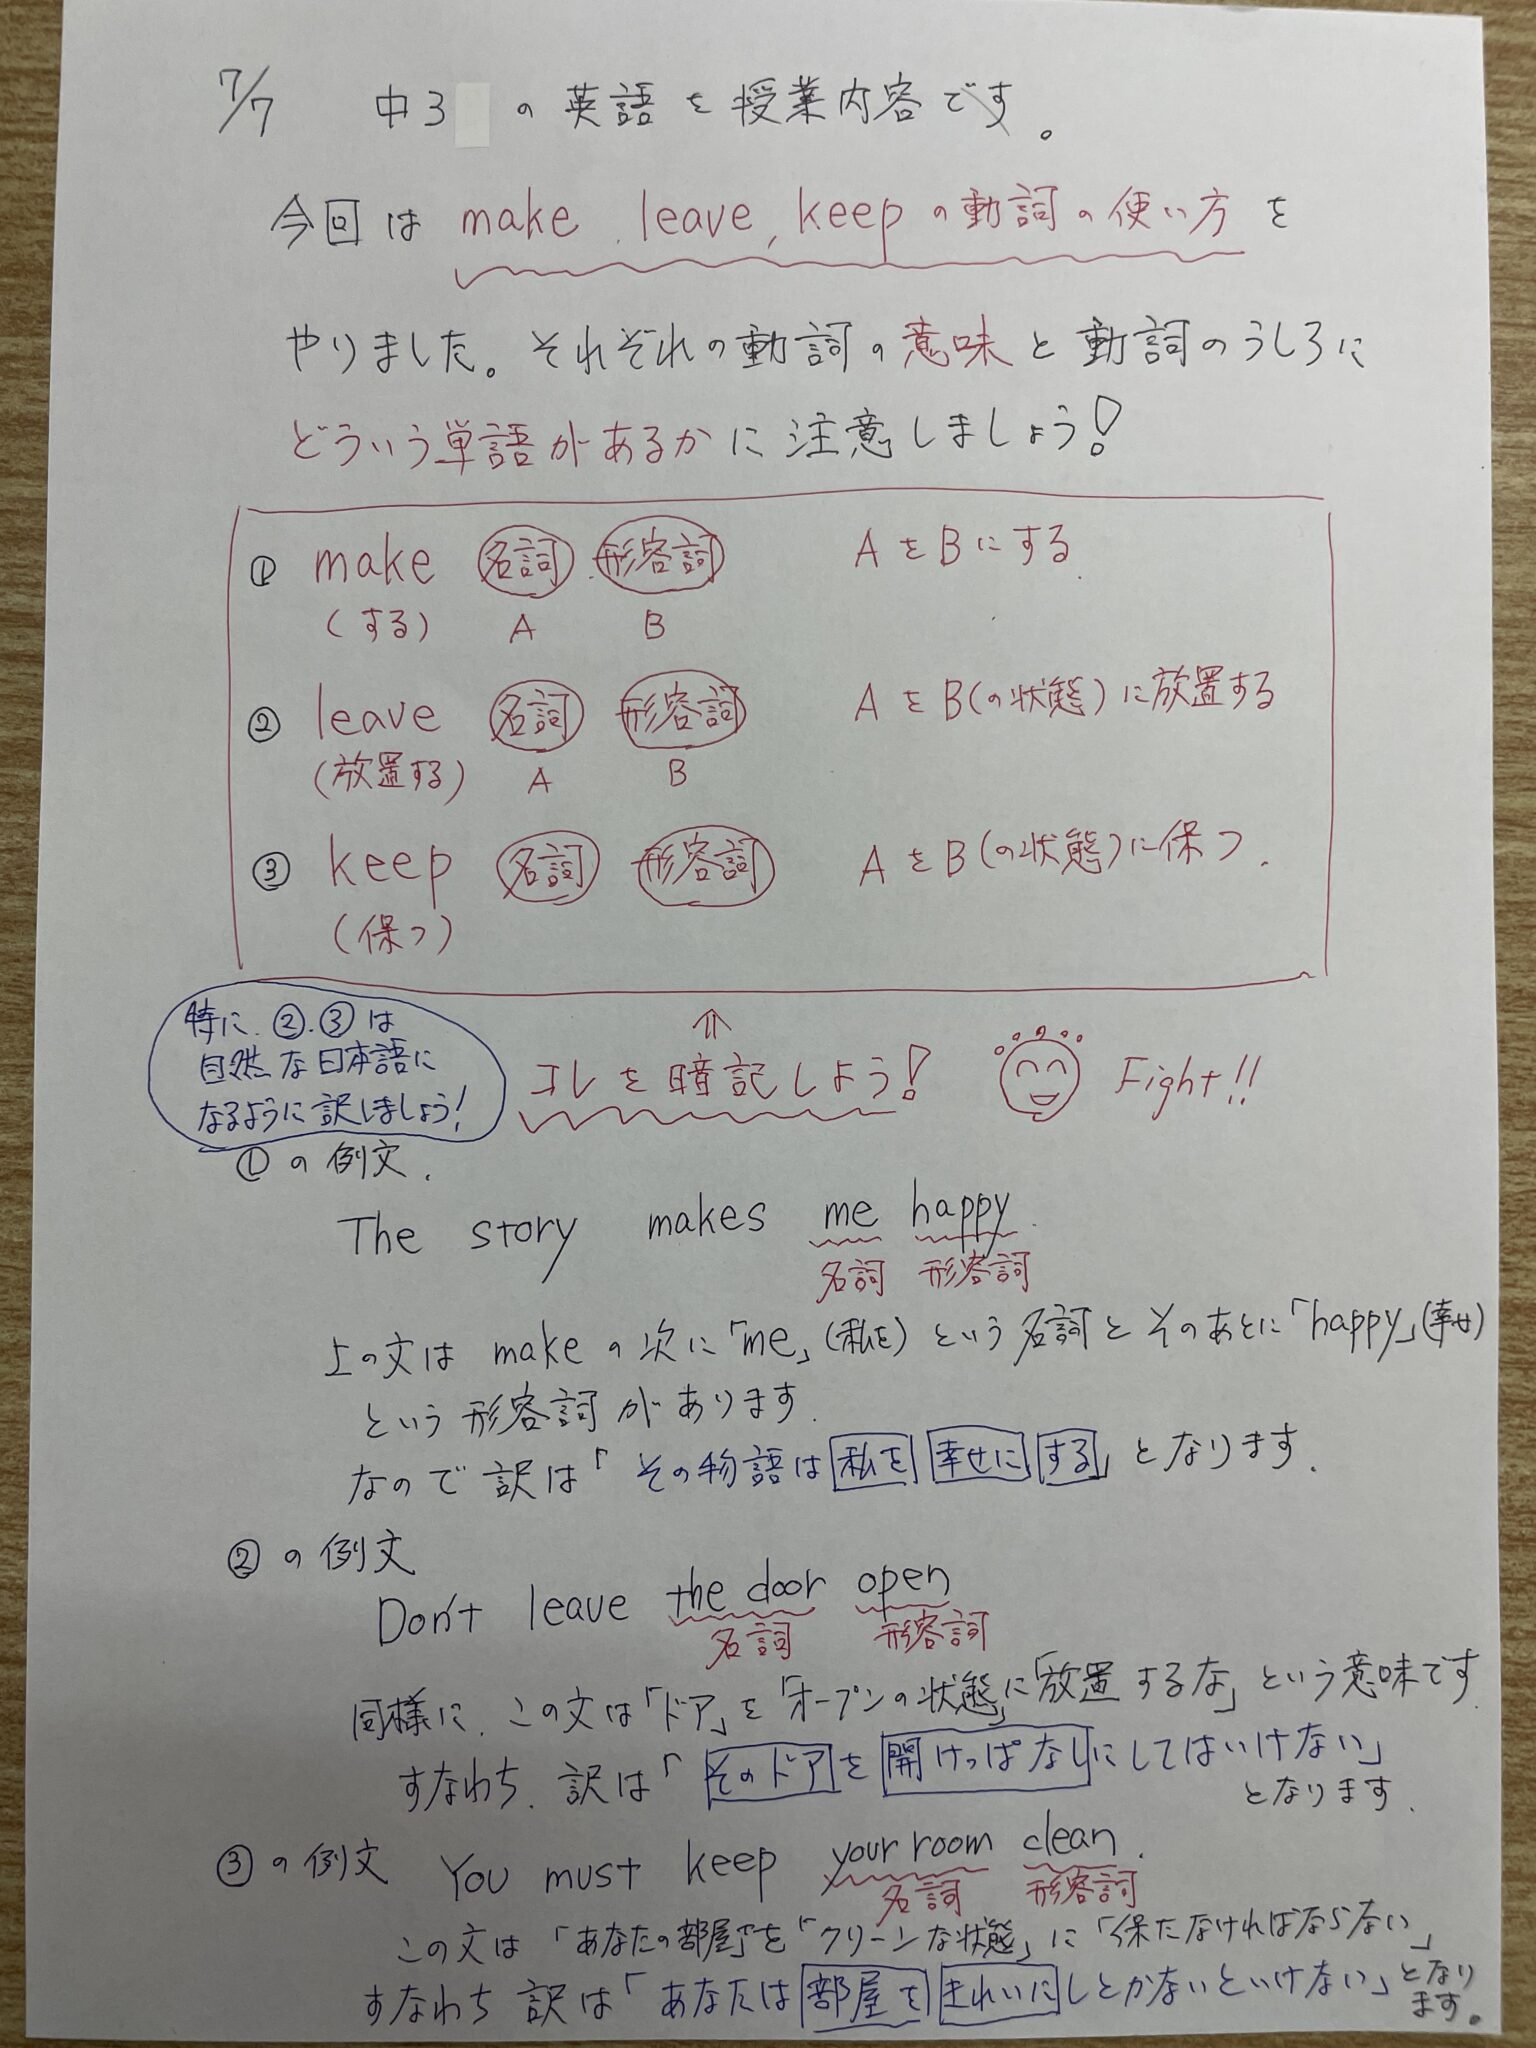 7/7 中3 の英語を授業内容です。
今回は make, leave, keepの動詞の使い方を
やりました。それぞれの動詞の意味と動詞のうしろに
どういう単語があるかに注意しましょう!
① make 名詞 形容詞 AをBにする
(する) A B
② leave 名詞 形容詞 AをB(の状態)に放置する
(放置する) A B
③ keep 名詞 形容詞 AをB(の状態)に保つ.
(保つ)
特に.②.③は
自然な日本語に
なるように訳しましょう!
⇑
コレを暗記しよう! Fight!!
①の例文.
The story makes me happy.
名詞 形容詞
上の文は makeの次に「me」(私を)という名詞とそのあとに「happy」(幸せ)
という形容詞があります.
なので訳は「その物語は私を幸せにする」となります.
②の例文
Don't leave the door open
名詞 形容詞
同様に.この文は「ドア」を「オープンの状態」に「放置するな」という意味です.
すなわち.訳は「そのドアを開けっぱなしにしてはいけない」
となります.
③の例文 You must keep your room clean.
名詞 形容詞
この文は「あなたの部屋」を「クリーンな状態」に「保たなければならない」
すなわち訳は「あなたは部屋をきれいにしとかないといけない」となり
ます。